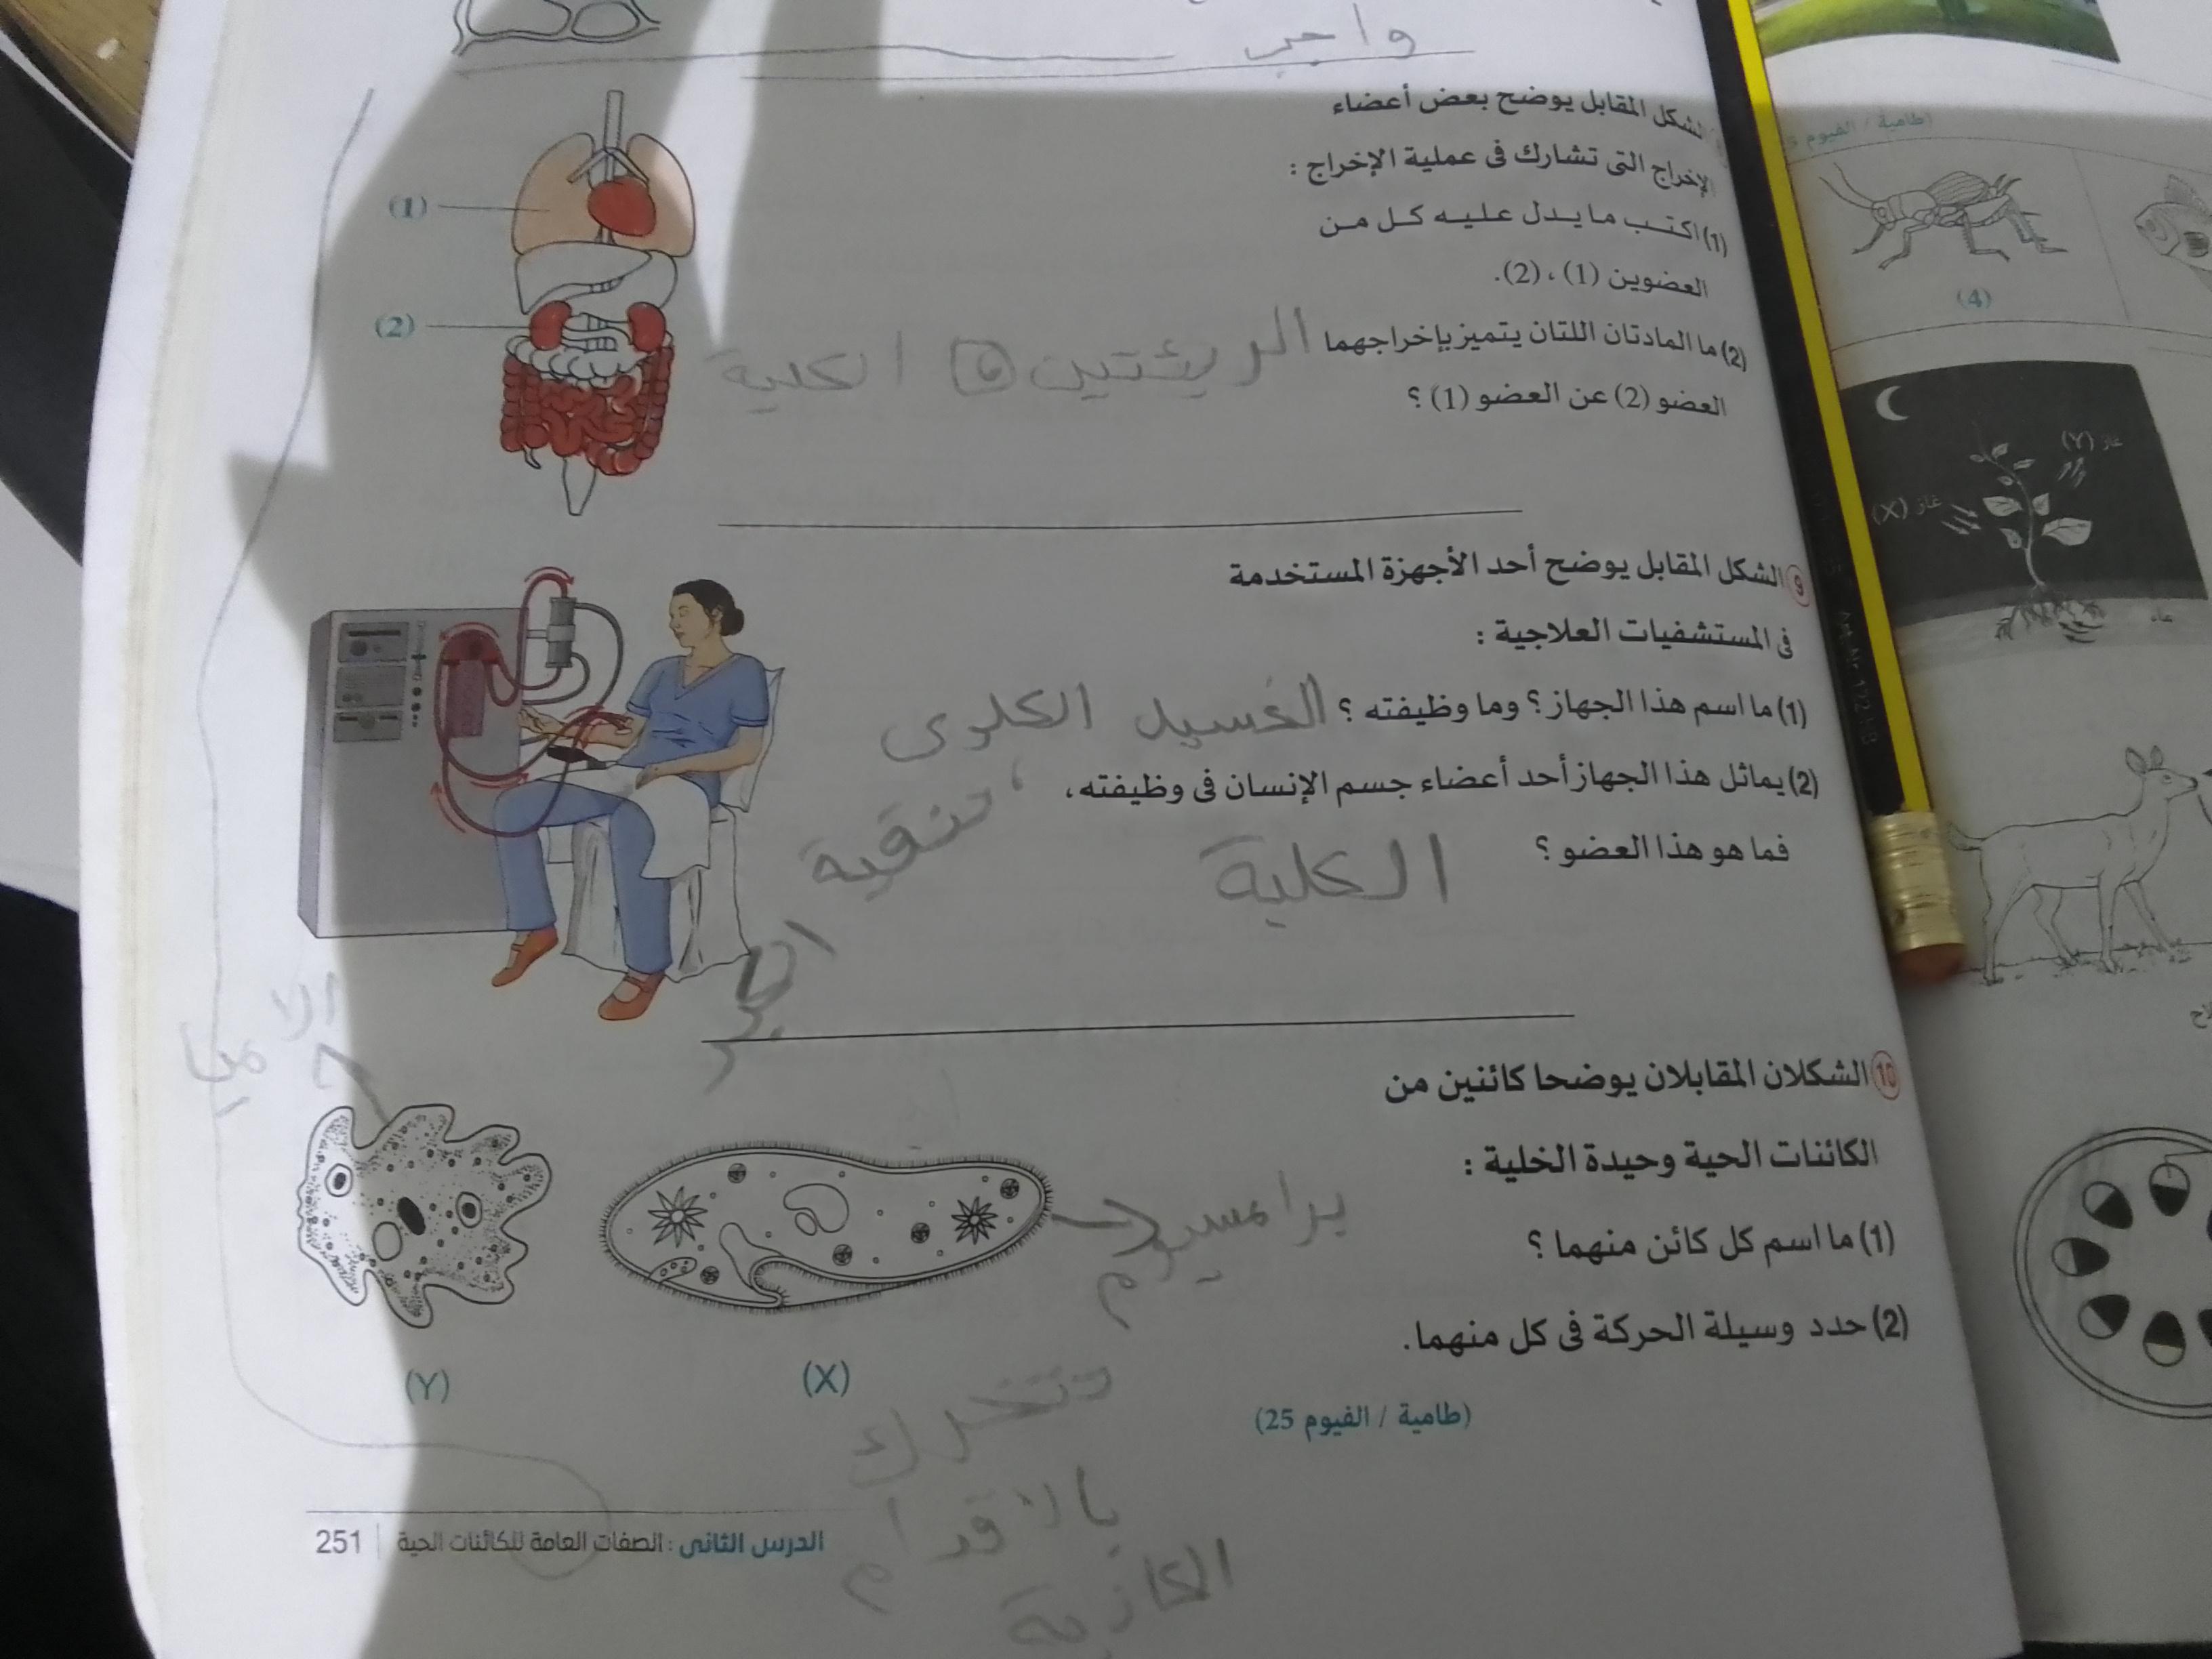 واجب
الشكل المقابل يوضح بعض أعضاء
الإخراج التى تشارك فى عملية الإخراج :
(1) اكتب ما يدل عليه كل من
العضوين (1) ، (2).
(2) ما المادتان اللتان يتميز بإخراجهما
العضو (2) عن العضو (1) ؟
الرئتين
الكلية
(1)
(2)
9 الشكل المقابل يوضح أحد الأجهزة المستخدمة
فى المستشفيات العلاجية :
(1) ما اسم هذا الجهاز ؟ وما وظيفته ؟
الغسيل الكلوى
تنقية
(2) يماثل هذا الجهاز أحد أعضاء جسم الإنسان فى وظيفته ،
فما هو هذا العضو ؟
الكلية
10 الشكلان المقابلان يوضحا كائنين من
الكائنات الحية وحيدة الخلية :
(1) ما اسم كل كائن منهما ؟
(2) حدد وسيلة الحركة فى كل منهما .
(طامية / الفيوم 25)
برامسيوم
(X)
(Y)
تتحرك
بالاقدام
الكاذبة
الدرس الثانى : الصفات العامة للكائنات الحية | 251
(4)
غاز (Y)
غاز (X)
ماء